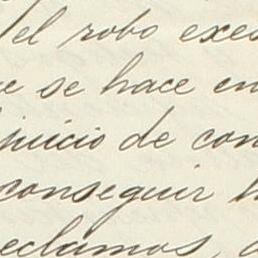 el robo exes
e se hace en
juicio de con
conseguir h
eclamos, a